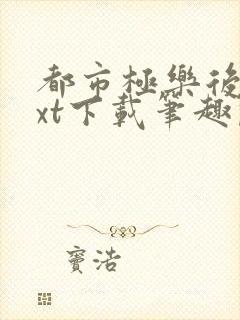 都市極樂後
xt下載筆趣
竇浩